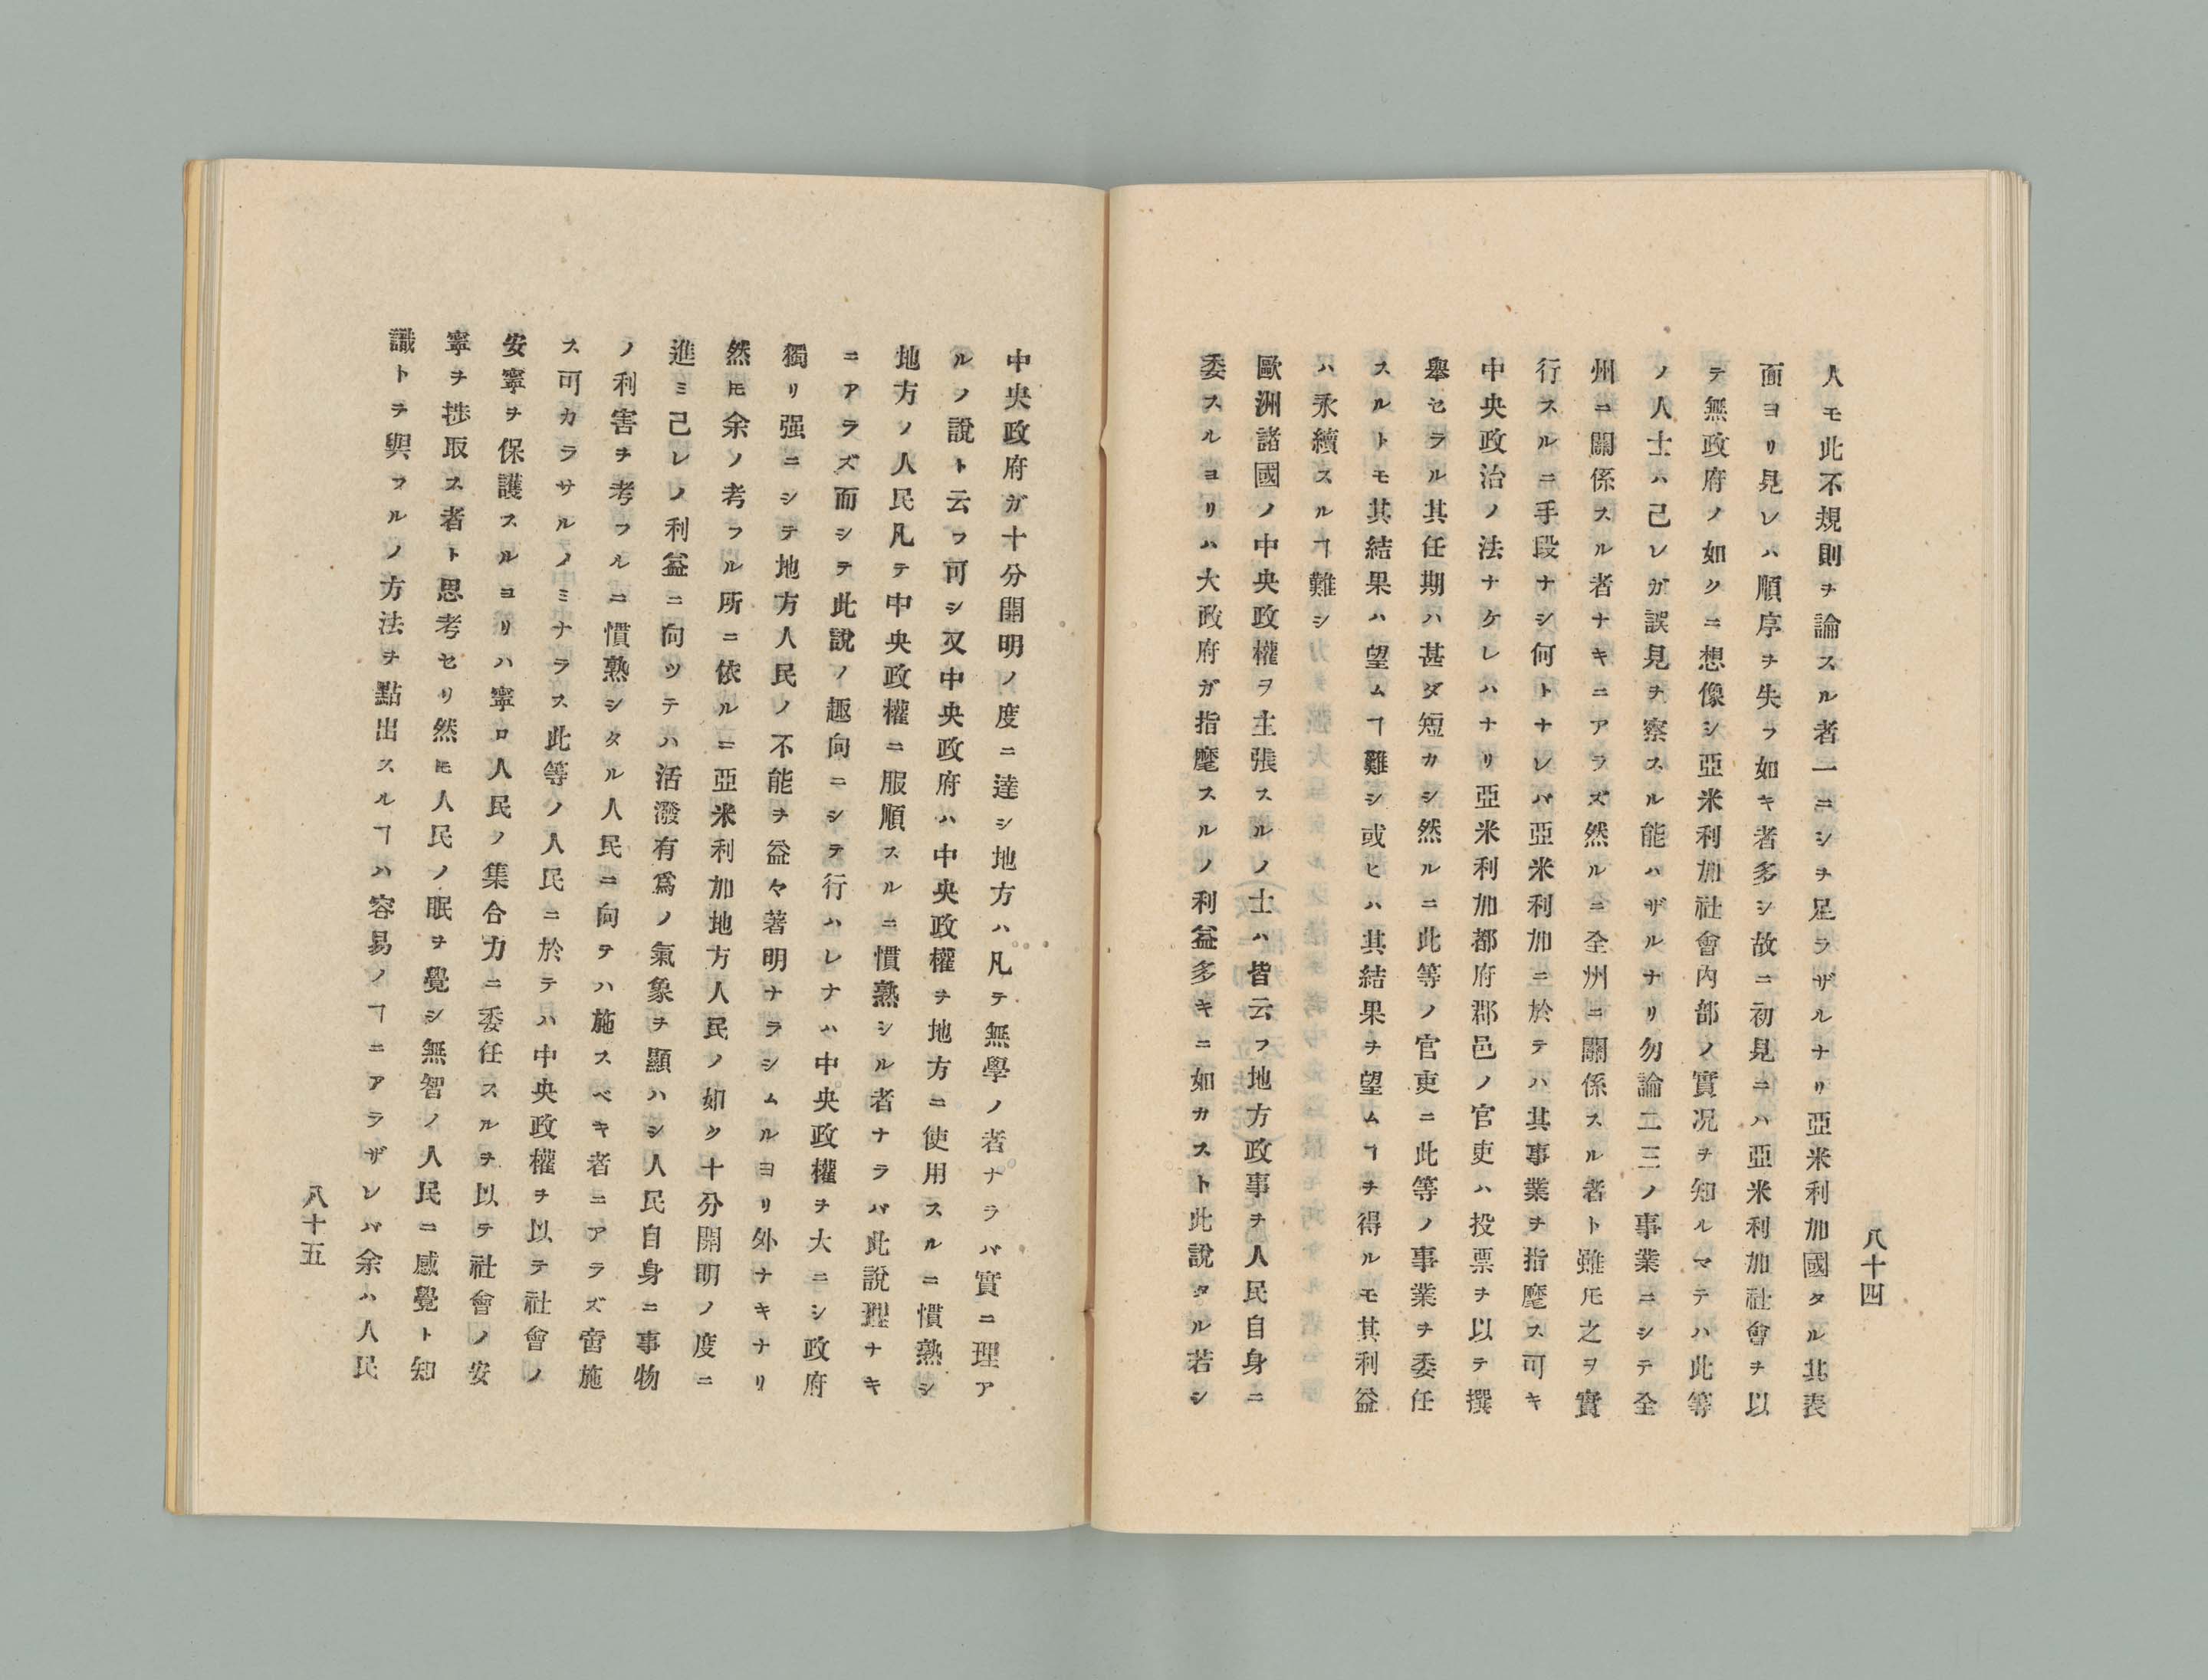 八十四
人モ此不規則ヲ論スル者一ニシヲ足ラザルナリ亞米利加國タル其表
面ヨリ見レハ順序ヲ失フ如キ者多シ故ニ初見ニハ亞米利加社會ヲ以
テ無政府ノ如クニ想像シ亞米利加社會內部ノ實況ヲ知ルマテハ此等
ノ人士ハ己レガ誤見ヲ察スル能ハザルナリ勿論二三ノ事業ニシテ全
州ニ關係スル者ナキニアラズ然ルニ全州ニ關係スル者ト雖𪜈之ヲ實
行スルニ手段ナシ何トナレバ亞米利加ニ於テハ其事業ヲ指麾ス可キ
中央政治ノ法ナケレハナリ亞米利加都府郡邑ノ官吏ハ投票ヲ以テ撰
舉セラル其任期ハ甚ダ短カシ然ルニ此等ノ官吏ニ此等ノ事業ヲ委任
スルトモ其結果ハ望ムヿ難シ或ヒハ其結果ヲ望ムヿヲ得ルモ其利益
ハ永續スルヿ難シ
歐洲諸國ノ中央政權ヲ主張スルノ士ハ皆云フ地方政事ヲ人民自身ニ
委スルヨリハ大政府ガ指麾スルノ利益多キニ如カスト此說タル若シ
中央政府ガ十分開明ノ度ニ達シ地方ハ凡テ無學ノ者ナラバ實ニ理ア
ルノ說ト云フ可シ又中央政府ハ中央政權ヲ地方ニ使用スルニ慣熟シ
地方ノ人民凡テ中央政權ニ服順スルニ慣熟シル者ナラバ此說理ナキ
ニアラズ而シテ此說ノ趣向ニシテ行ハレナハ中央政權ヲ大ニシ政府
獨リ强ニシテ地方人民ノ不能ヲ益々著明ナラシムルヨリ外ナキナリ
然𪜈余ノ考フル所ニ依ルニ亞米利加地方人民ノ如ク十分開明ノ度ニ
進ミ己レノ利益ニ向ツテハ活潑有爲ノ氣象ヲ顯ハシ人民自身ニ事物
ノ利害ヲ考フルニ慣熟シタル人民ニ向テハ施スベキ者ニアラズ啻施
ス可カラサルノミナラス此等ノ人民ニ於テハ中央政權ヲ以テ社會ノ
安寧ヲ保護スルヨリハ寧ロ人民ノ集合力ニ委任スルヲ以テ社會ノ安
寧ヲ捗取ス者ト思考セリ然𪜈人民ノ眠ヲ覺シ無智ノ人民ニ感覺ト知
識トヲ與フルノ方法ヲ點出スルヿハ容易ノヿニアラザレバ余ハ人民
八十五